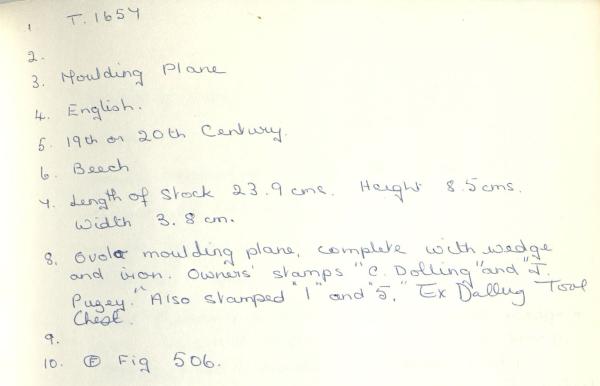 1 T. 1654
2.
3. Moulding Plane
4. English.
5. 19th or 20th Century.
6. Beech
7. Length of Stock 23.9 cms. Height 8.5 cms.
Width 3.8 cm.
8. Ovolo moulding plane, complete with wedge
and iron. Owners' stamps "C. Dolling" and "J.
Pugey." Also stamped "1" and "5." Ex Dalling Tool
Chest.
9.
10. Ⓕ Fig 506.